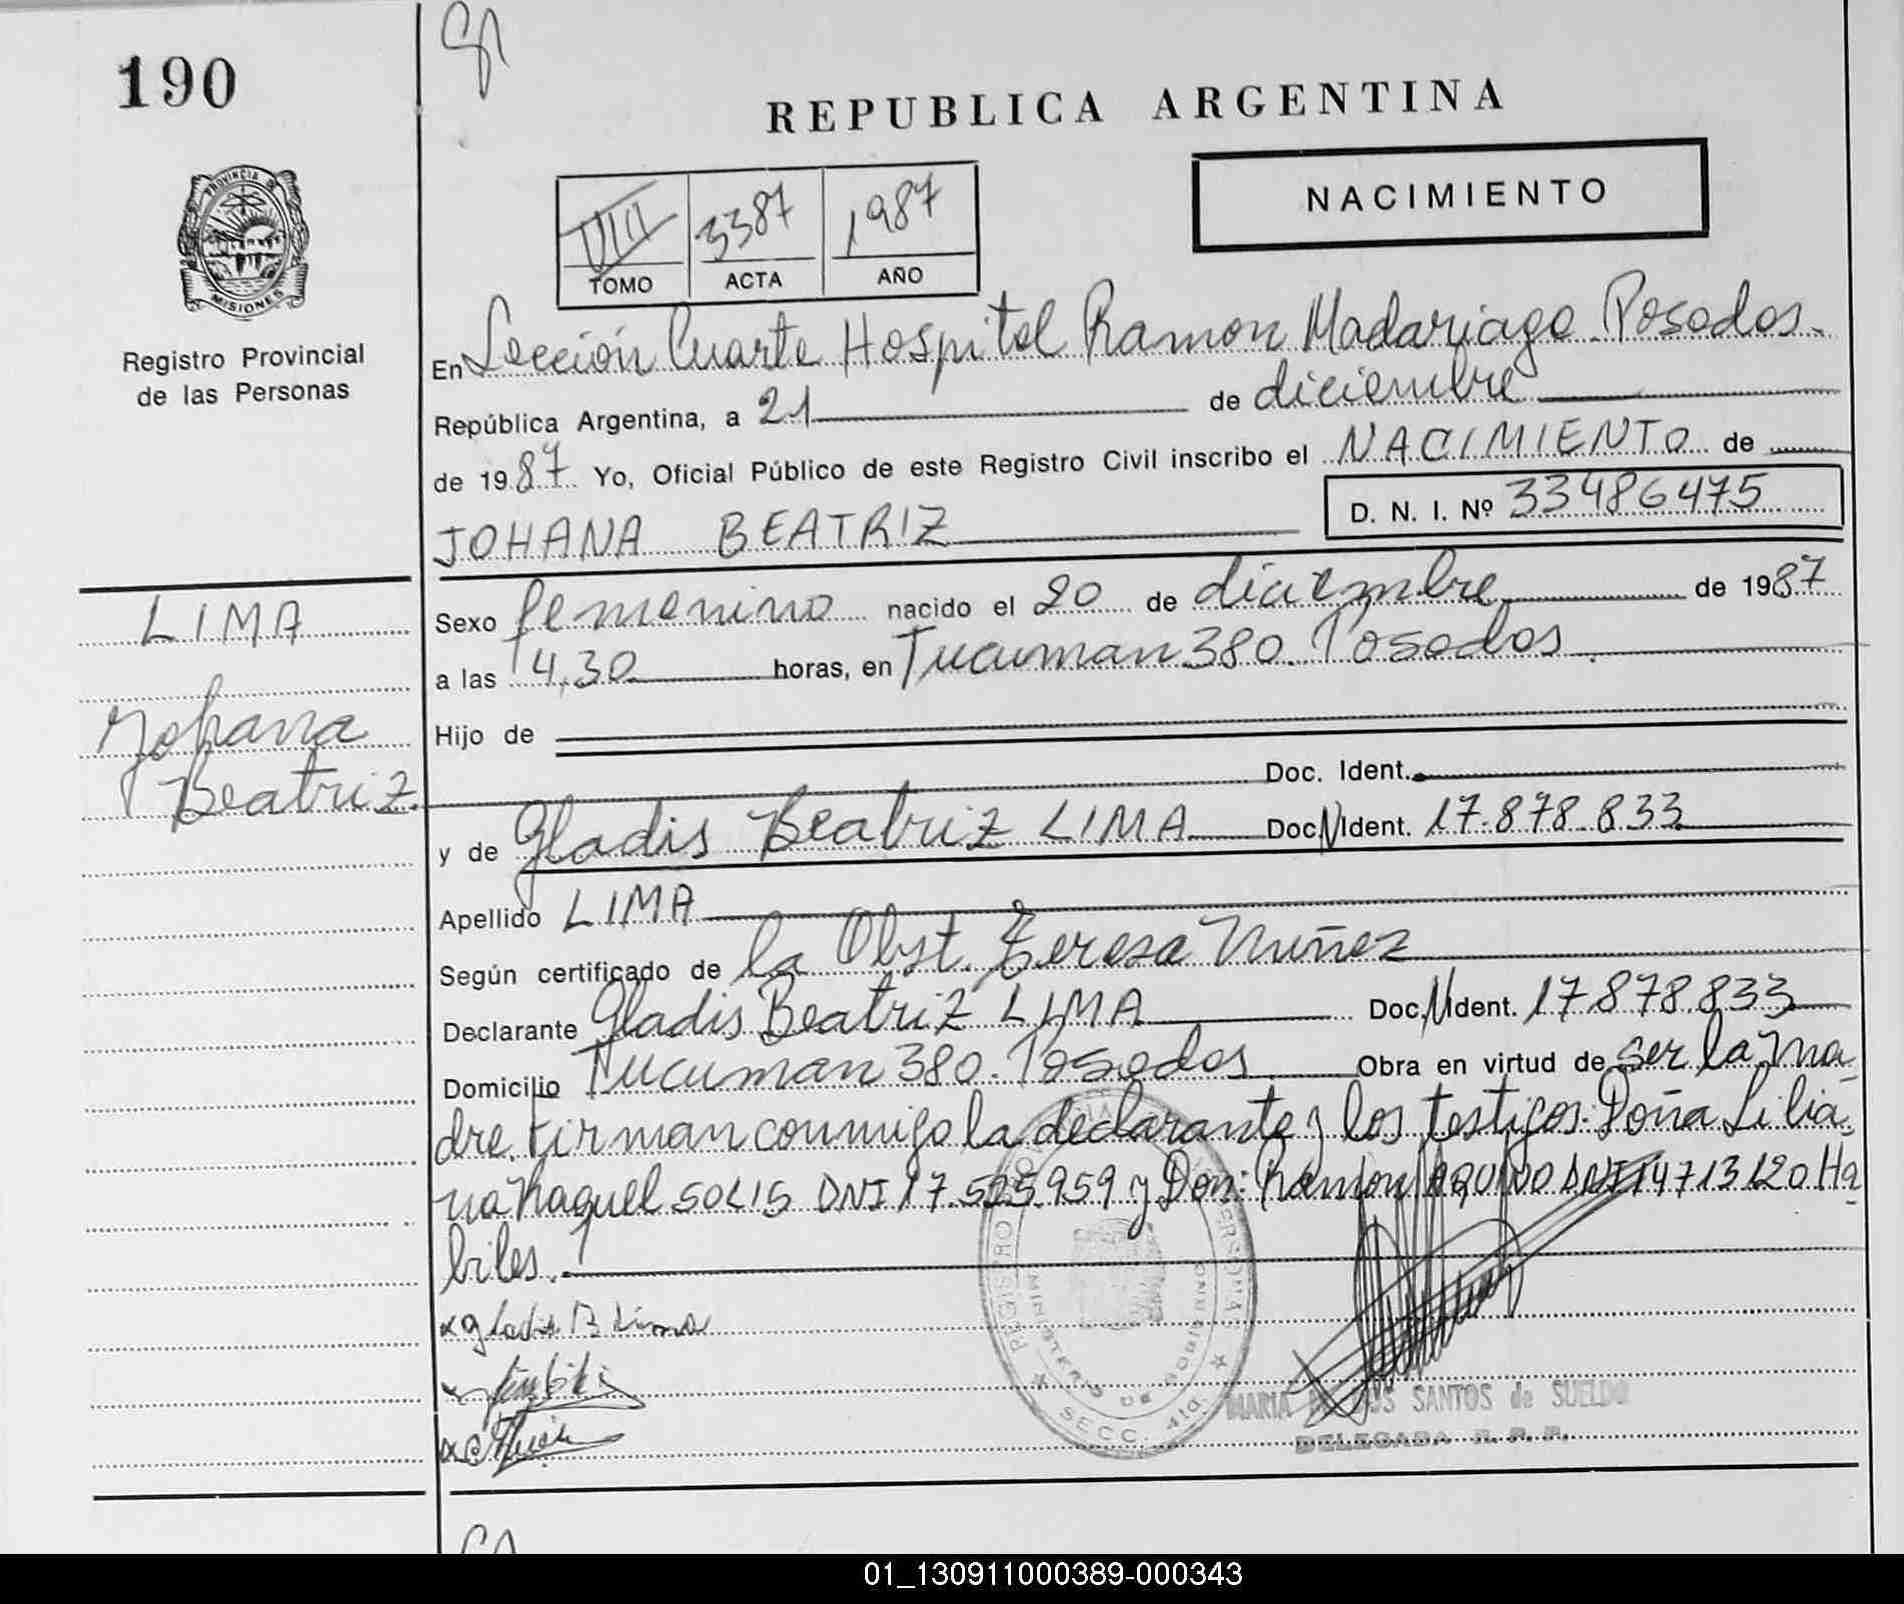 190
REPUBLICA ARGENTINA
NACIMIENTO
VIII 3387 1987
TOMO ACTA AÑO
PROVINCIA DE
MISIONES
Registro Provincial
de las Personas
En Sección Cuarta Hospital Ramon Madariaga. Posadas.
República Argentina, a 21 de diciembre
de 1987 Yo, Oficial Público de este Registro Civil inscribo el NACIMIENTO de
JOHANA BEATRIZ D. N. I. Nº 33486475
LIMA
Johana
Beatriz
Sexo femenino nacido el 20 de diciembre de 1987
a las 14,30 horas, en Tucuman 380. Posadas.
Hijo de
Doc. Ident.
y de Gladis Beatriz LIMA Doc. N Ident. 17.878.833
Apellido LIMA
Según certificado de la Obst. Teresa Nuñez
Declarante Gladis Beatriz LIMA Doc. N Ident. 17.878.833
Domicilio Tucuman 380. Posadas Obra en virtud de ser la ma
dre. Firman conmigo la declarante y los testigos: Doña Lilia
na Raquel SOLIS DNI 17.525.959 y Don: Ramon AQUINO DNI 14713120 Há
biles.
Gladis B Lima
REGISTRO
MINISTERIO DE GOBIERNO
SECC. 4ta.
MARIA SANTOS de SUELDO
DELEGADA R. P. P.
01_130911000389-000343